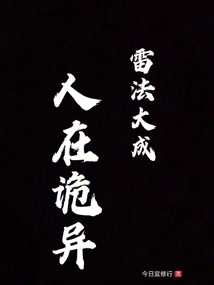 雷法大成
人在诡异
今日宜修行